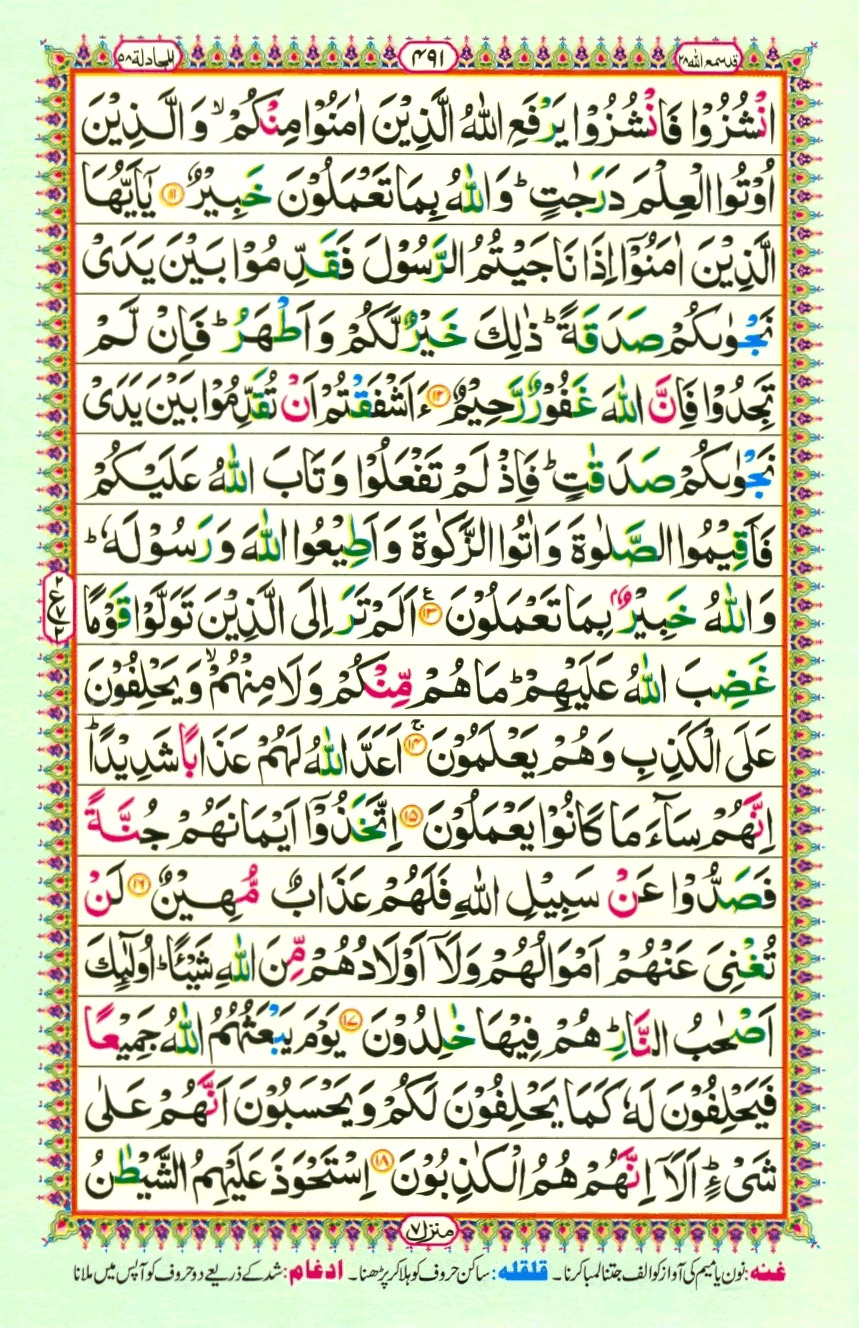 قدسمع الله ۲۸
۴۹۱
المجادلة ۵۸
انْشُزُوْا فَانْشُزُوْا يَرْفَعِ اللّٰهُ الَّذِيْنَ اٰمَنُوْا مِنْكُمْ ۙ وَالَّذِيْنَ
اُوْتُوا الْعِلْمَ دَرَجٰتٍ ؕ وَاللّٰهُ بِمَا تَعْمَلُوْنَ خَبِيْرٌ ۝۱۱ يٰۤاَيُّهَا
الَّذِيْنَ اٰمَنُوْۤا اِذَا نَاجَيْتُمُ الرَّسُوْلَ فَقَدِّمُوْا بَيْنَ يَدَىْ
نَجْوٰىكُمْ صَدَقَةً ؕ ذٰلِكَ خَيْرٌ لَّكُمْ وَاَطْهَرُ ؕ فَاِنْ لَّمْ
تَجِدُوْا فَاِنَّ اللّٰهَ غَفُوْرٌ رَّحِيْمٌ ۝۱۲ ءَاَشْفَقْتُمْ اَنْ تُقَدِّمُوْا بَيْنَ يَدَىْ
نَجْوٰىكُمْ صَدَقٰتٍ ؕ فَاِذْ لَمْ تَفْعَلُوْا وَتَابَ اللّٰهُ عَلَيْكُمْ
فَاَقِيْمُوا الصَّلٰوةَ وَاٰتُوا الزَّكٰوةَ وَاَطِيْعُوا اللّٰهَ وَرَسُوْلَهٗ ؕ
وَاللّٰهُ خَبِيْرٌۢ بِمَا تَعْمَلُوْنَ ۝۱۳ۧ اَلَمْ تَرَ اِلَى الَّذِيْنَ تَوَلَّوْا قَوْمًا
۲
ع
۷
۲
غَضِبَ اللّٰهُ عَلَيْهِمْ ؕ مَا هُمْ مِّنْكُمْ وَلَا مِنْهُمْ ۙ وَيَحْلِفُوْنَ
عَلَى الْكَذِبِ وَهُمْ يَعْلَمُوْنَ ۝۱۴ۚ اَعَدَّ اللّٰهُ لَهُمْ عَذَابًا شَدِيْدًا ؕ
اِنَّهُمْ سَآءَ مَا كَانُوْا يَعْمَلُوْنَ ۝۱۵ اِتَّخَذُوْۤا اَيْمَانَهُمْ جُنَّةً
فَصَدُّوْا عَنْ سَبِيْلِ اللّٰهِ فَلَهُمْ عَذَابٌ مُّهِيْنٌ ۝۱۶ لَنْ
تُغْنِىَ عَنْهُمْ اَمْوَالُهُمْ وَلَاۤ اَوْلَادُهُمْ مِّنَ اللّٰهِ شَيْـًٔا ؕ اُولٰٓئِكَ
اَصْحٰبُ النَّارِ ؕ هُمْ فِيْهَا خٰلِدُوْنَ ۝۱۷ يَوْمَ يَبْعَثُهُمُ اللّٰهُ جَمِيْعًا
فَيَحْلِفُوْنَ لَهٗ كَمَا يَحْلِفُوْنَ لَكُمْ وَيَحْسَبُوْنَ اَنَّهُمْ عَلٰى
شَىْءٍ ؕ اَلَاۤ اِنَّهُمْ هُمُ الْكٰذِبُوْنَ ۝۱۸ اِسْتَحْوَذَ عَلَيْهِمُ الشَّيْطٰنُ
منزل ۷
غنہ: نون یا میم کی آواز کو الف جتنا لمبا کرنا۔ قلقلہ: ساکن حروف کو ہلا کر پڑھنا۔ ادغام: شد کے ذریعے دو حروف کو آپس میں ملانا